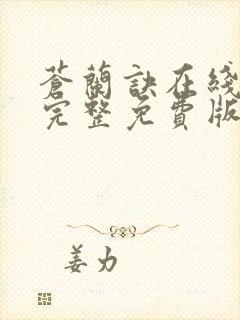 蒼蘭訣在綫
完整免費版
姜力